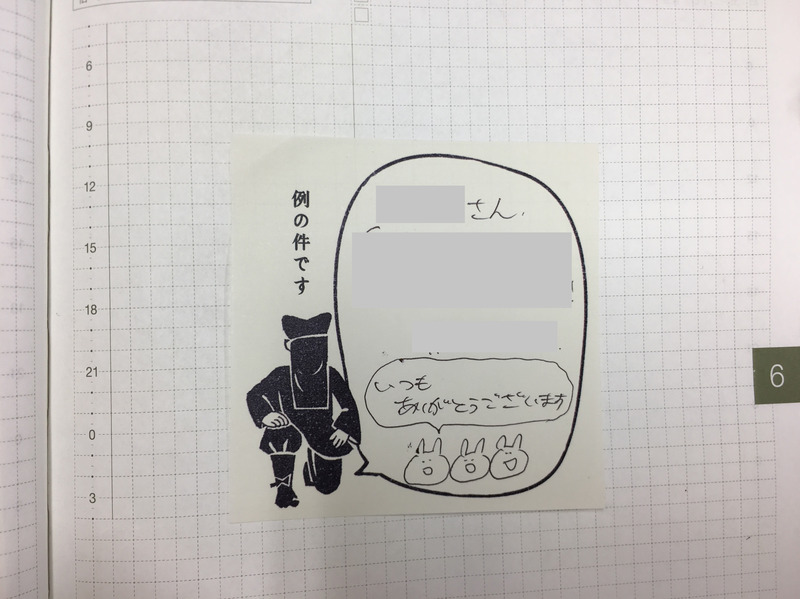 6
9
12
15
18
21
0
3
例の件です
さん、
いつも
ありがとうございます
6